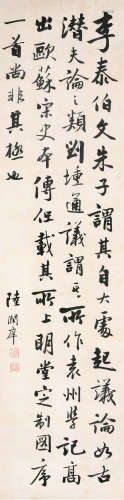 李泰伯文朱子謂其自大處起議論如古
潛夫論之類劉壎通議謂其所作袁州學記高
出歐蘇宋史本傳但載其所上明堂定制圖序
一首尚非其極也
陸潤庠